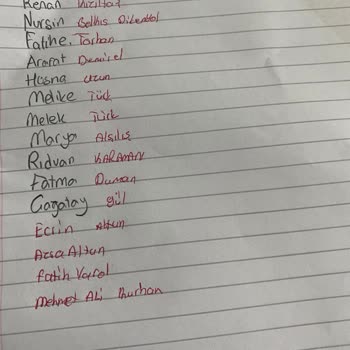 Kenan Kızıltaş
Nursin Belkıs Dikentol
Fatihe, Tarhan
Ararat Demirel
Hasna uzun
Melike Türk
Melek Türk
Marya Alsılış
Rıdvan KARAMAN
Fatma Duman
Çagatay gül
Ecrin Altun
Arsa Altun
Fatih Varol
Mehmet Ali Burhan